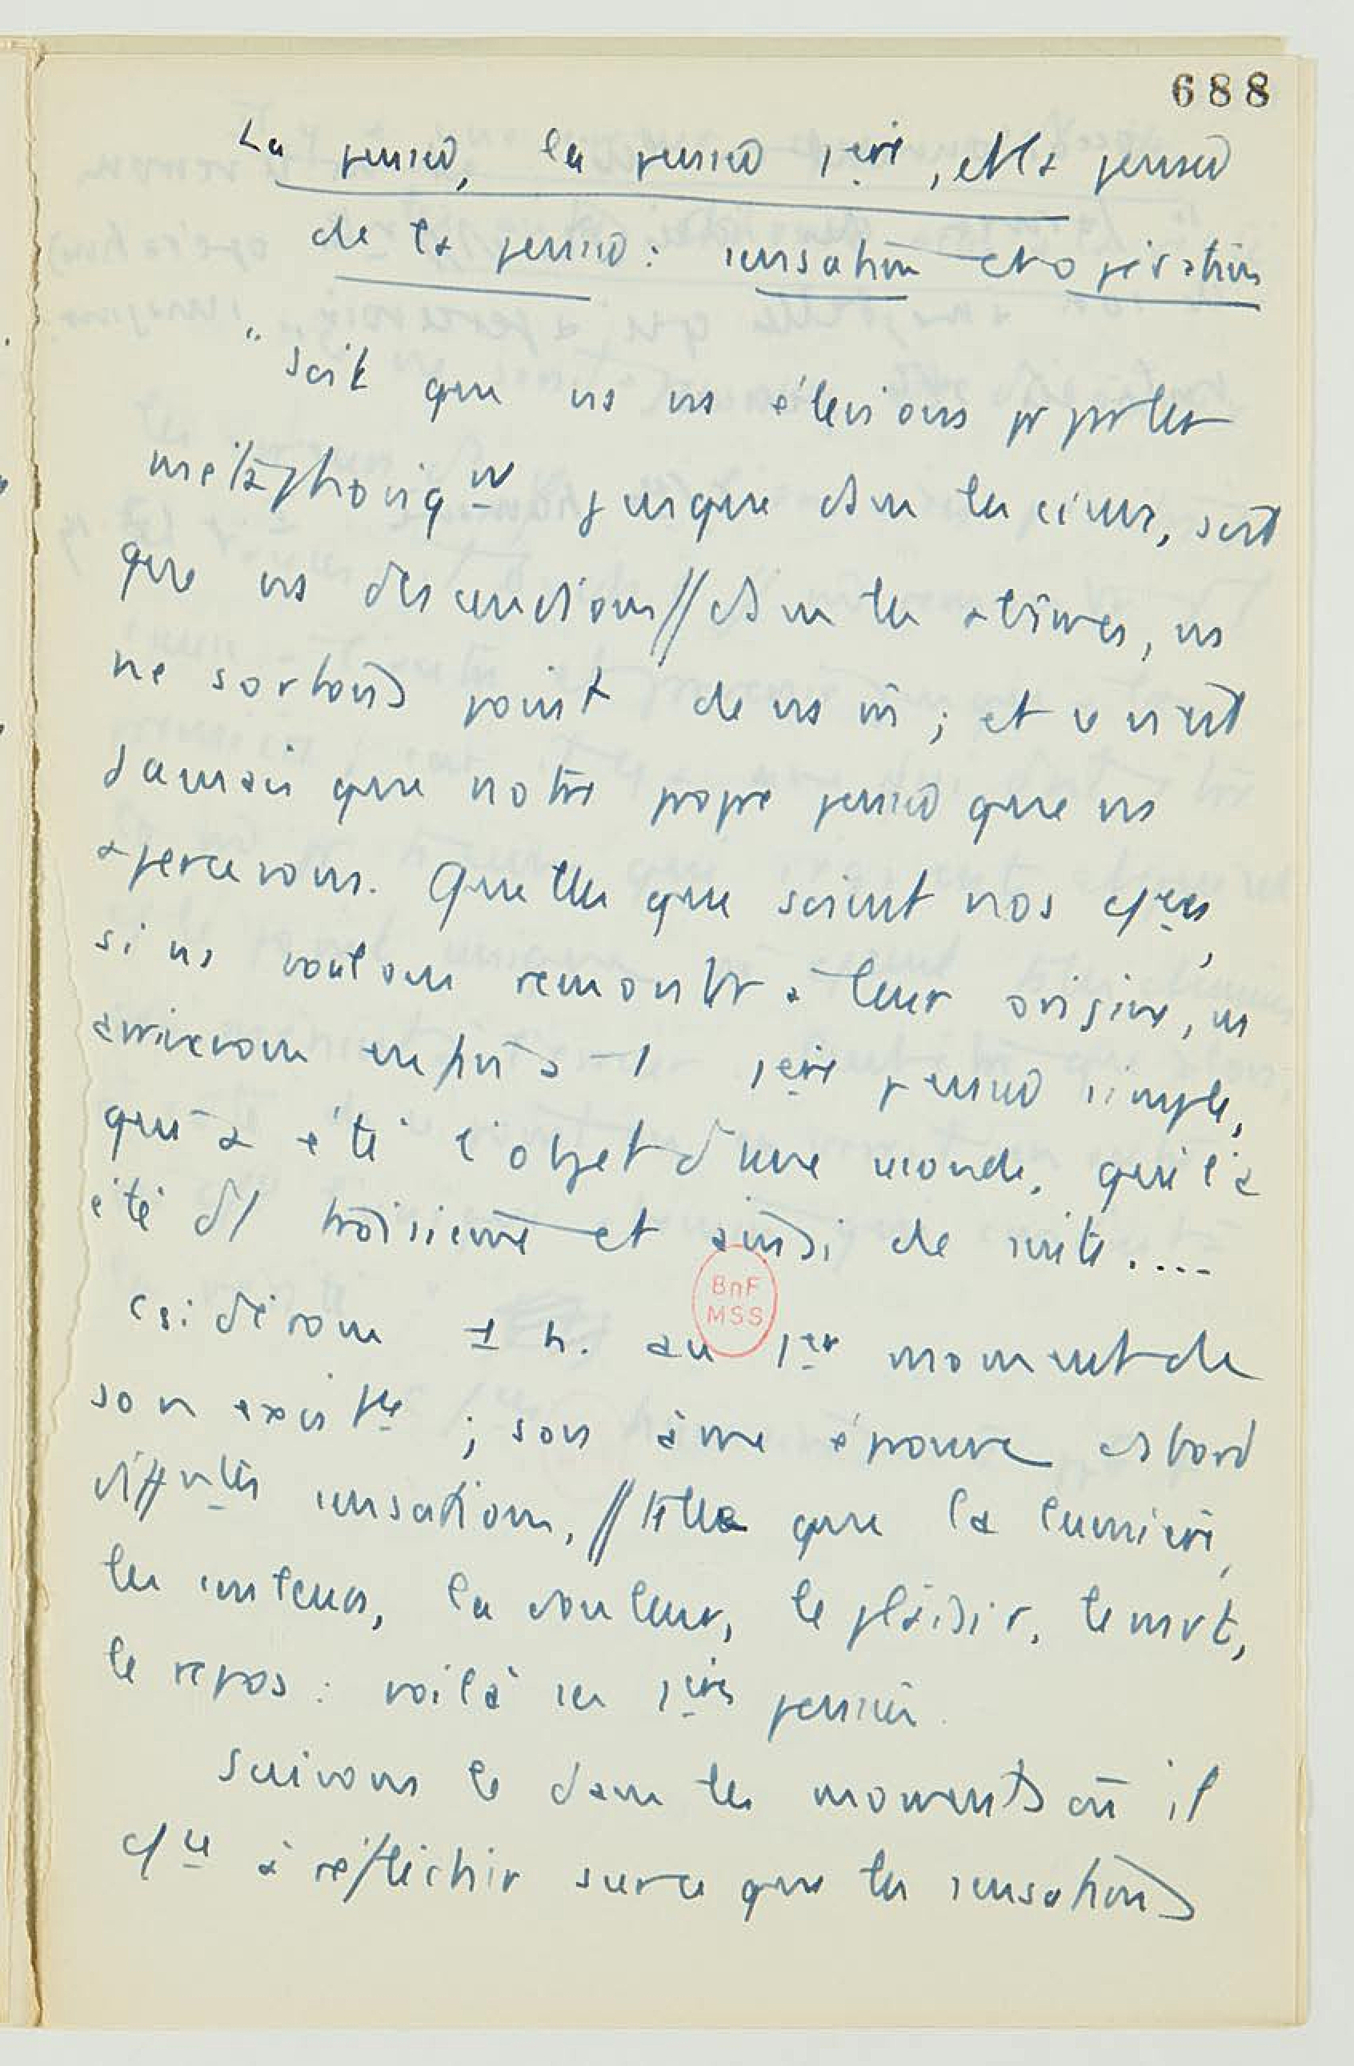 688
La pensée, la pensée 1ère, et la pensée
de la pensée : sensation et opération
" Soit que ns ns élevions pr parler
métaphoriqt jusque dans les cieux, soit
que ns descendions // dans les abîmes, ns
ne sortons point de ns m̂ ; et ce n'est
jamais que notre propre pensée que ns
apercevons. Quelles que soient nos cces,
si ns voulons remonter à leur origine, ns
arriverons enfin à 1 1ère pensée simple,
qui a été l'objet d'une seconde, qui l'a
été d'1 troisième et ainsi de suite....
Csidérons 1 h. au 1er moment de
son existce ; son âme éprouve d'abord
difftes sensations, // telles que la lumière,
les couleurs, la douleur, le plaisir, le mvt,
le repos : voilà ses 1ères pensées.
Suivons le dans les moments où il
cce à réfléchir sur ce que les sensations
BnF
MSS